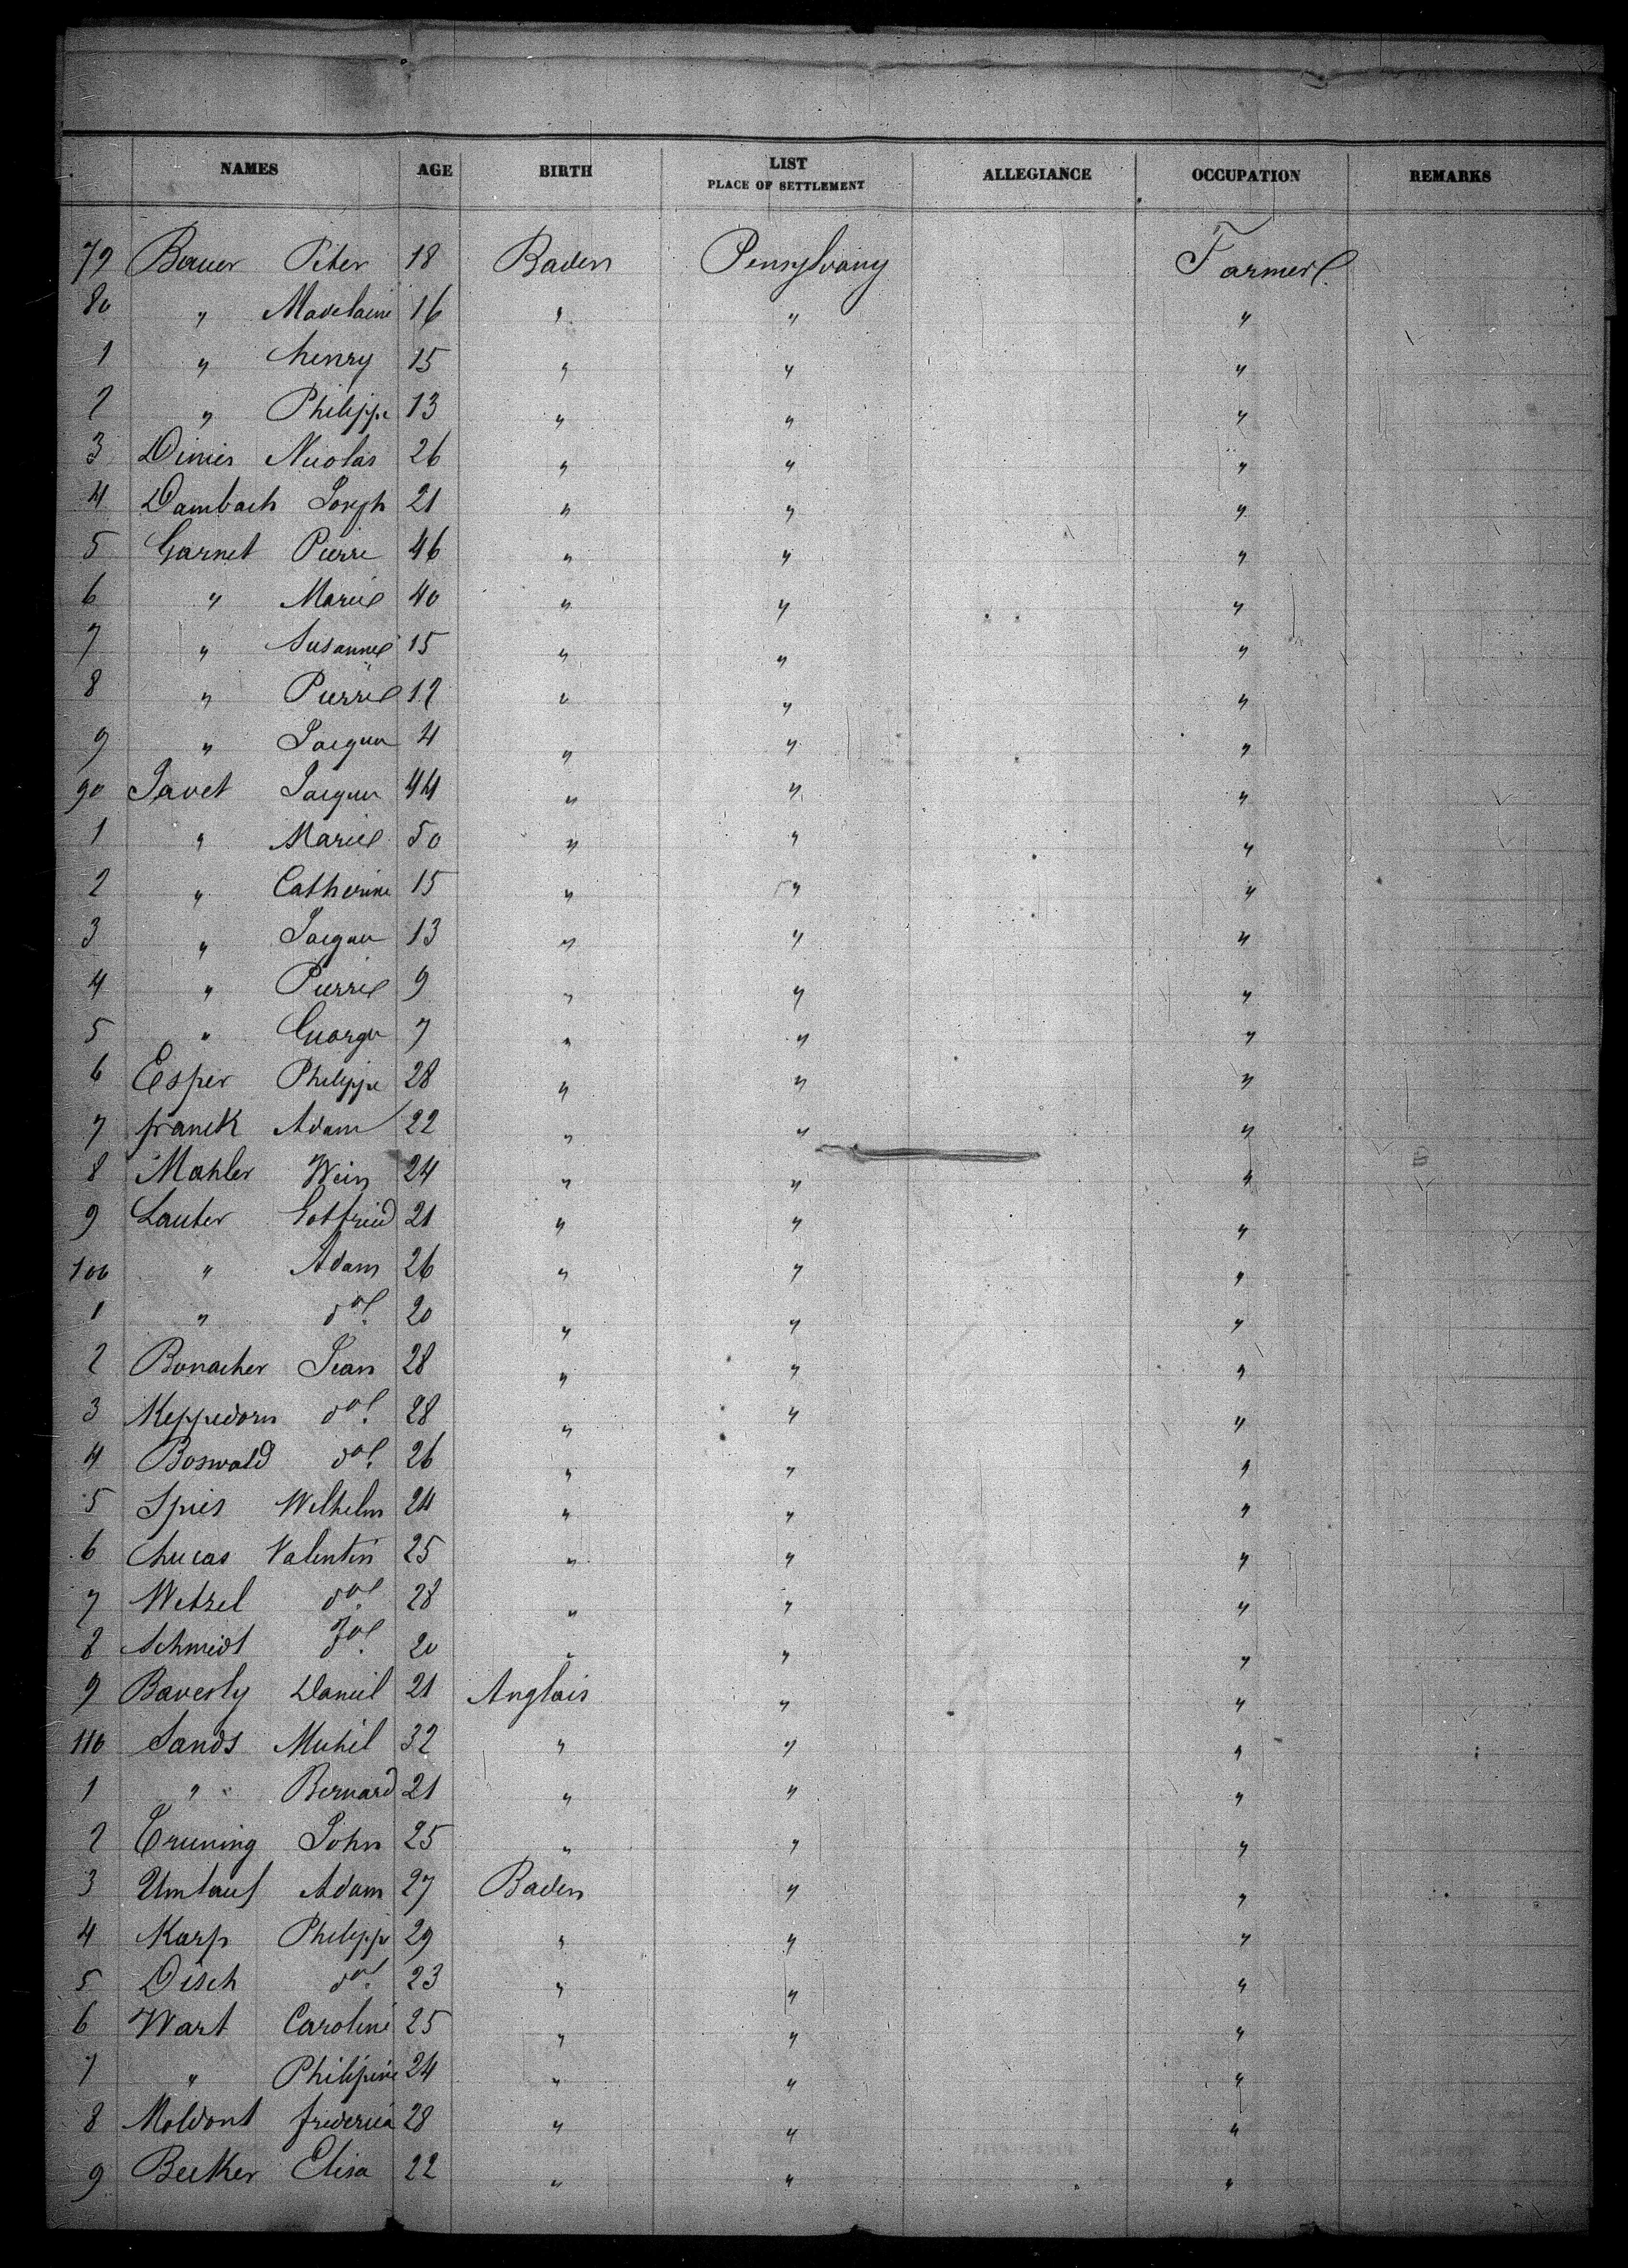 NAMES AGE BIRTH LIST PLACE OF SETTLEMENT ALLEGIANCE OCCUPATION REMARKS
79 Bauer Peter 18 Baden Pensylvany Farmer
80 " Madelaine 16 " " "
1 " henry 15 " " "
2 " Philippe 13 " " "
3 Dimes Nicolas 26 " " "
4 Dambach Joseph 21 " " "
5 Garnet Pierre 46 " " "
6 " Marie 40 " " "
7 " Susanne 15 " " "
8 " Pierre 12 " " "
9 " Jacques 4 " " "
90 Javet Jacques 44 " " "
1 " Marie 50 " " "
2 " Catherine 15 " " "
3 " Jacques 13 " " "
4 " Pierre 9 " " "
5 " George 7 " " "
6 Esper Philippe 28 " " "
7 franck Adam 22 " " "
8 Mahler Wein 24 " " "
9 Lauter Gottfried 21 " " "
100 " Adam 26 " " "
1 " do. 20 " " "
2 Bonacher Jean 28 " " "
3 Keppedorn do. 28 " " "
4 Boswald do. 26 " " "
5 Spies Wilhelm 24 " " "
6 Lucas Valentin 25 " " "
7 Wetzel do. 28 " " "
8 Schmidt do. 20 " " "
9 Baverly Daniel 21 Anglais " "
110 Sands Michel 32 " " "
1 " Bernard 21 " " "
2 Cruning John 25 " " "
3 Umlauf Adam 27 Baden " "
4 Karp Philippe 29 " " "
5 Disch do. 23 " " "
6 Wart Caroline 25 " " "
7 " Philipine 24 " " "
8 Moldont frederica 28 " " "
9 Becker Elisa 22 " " "